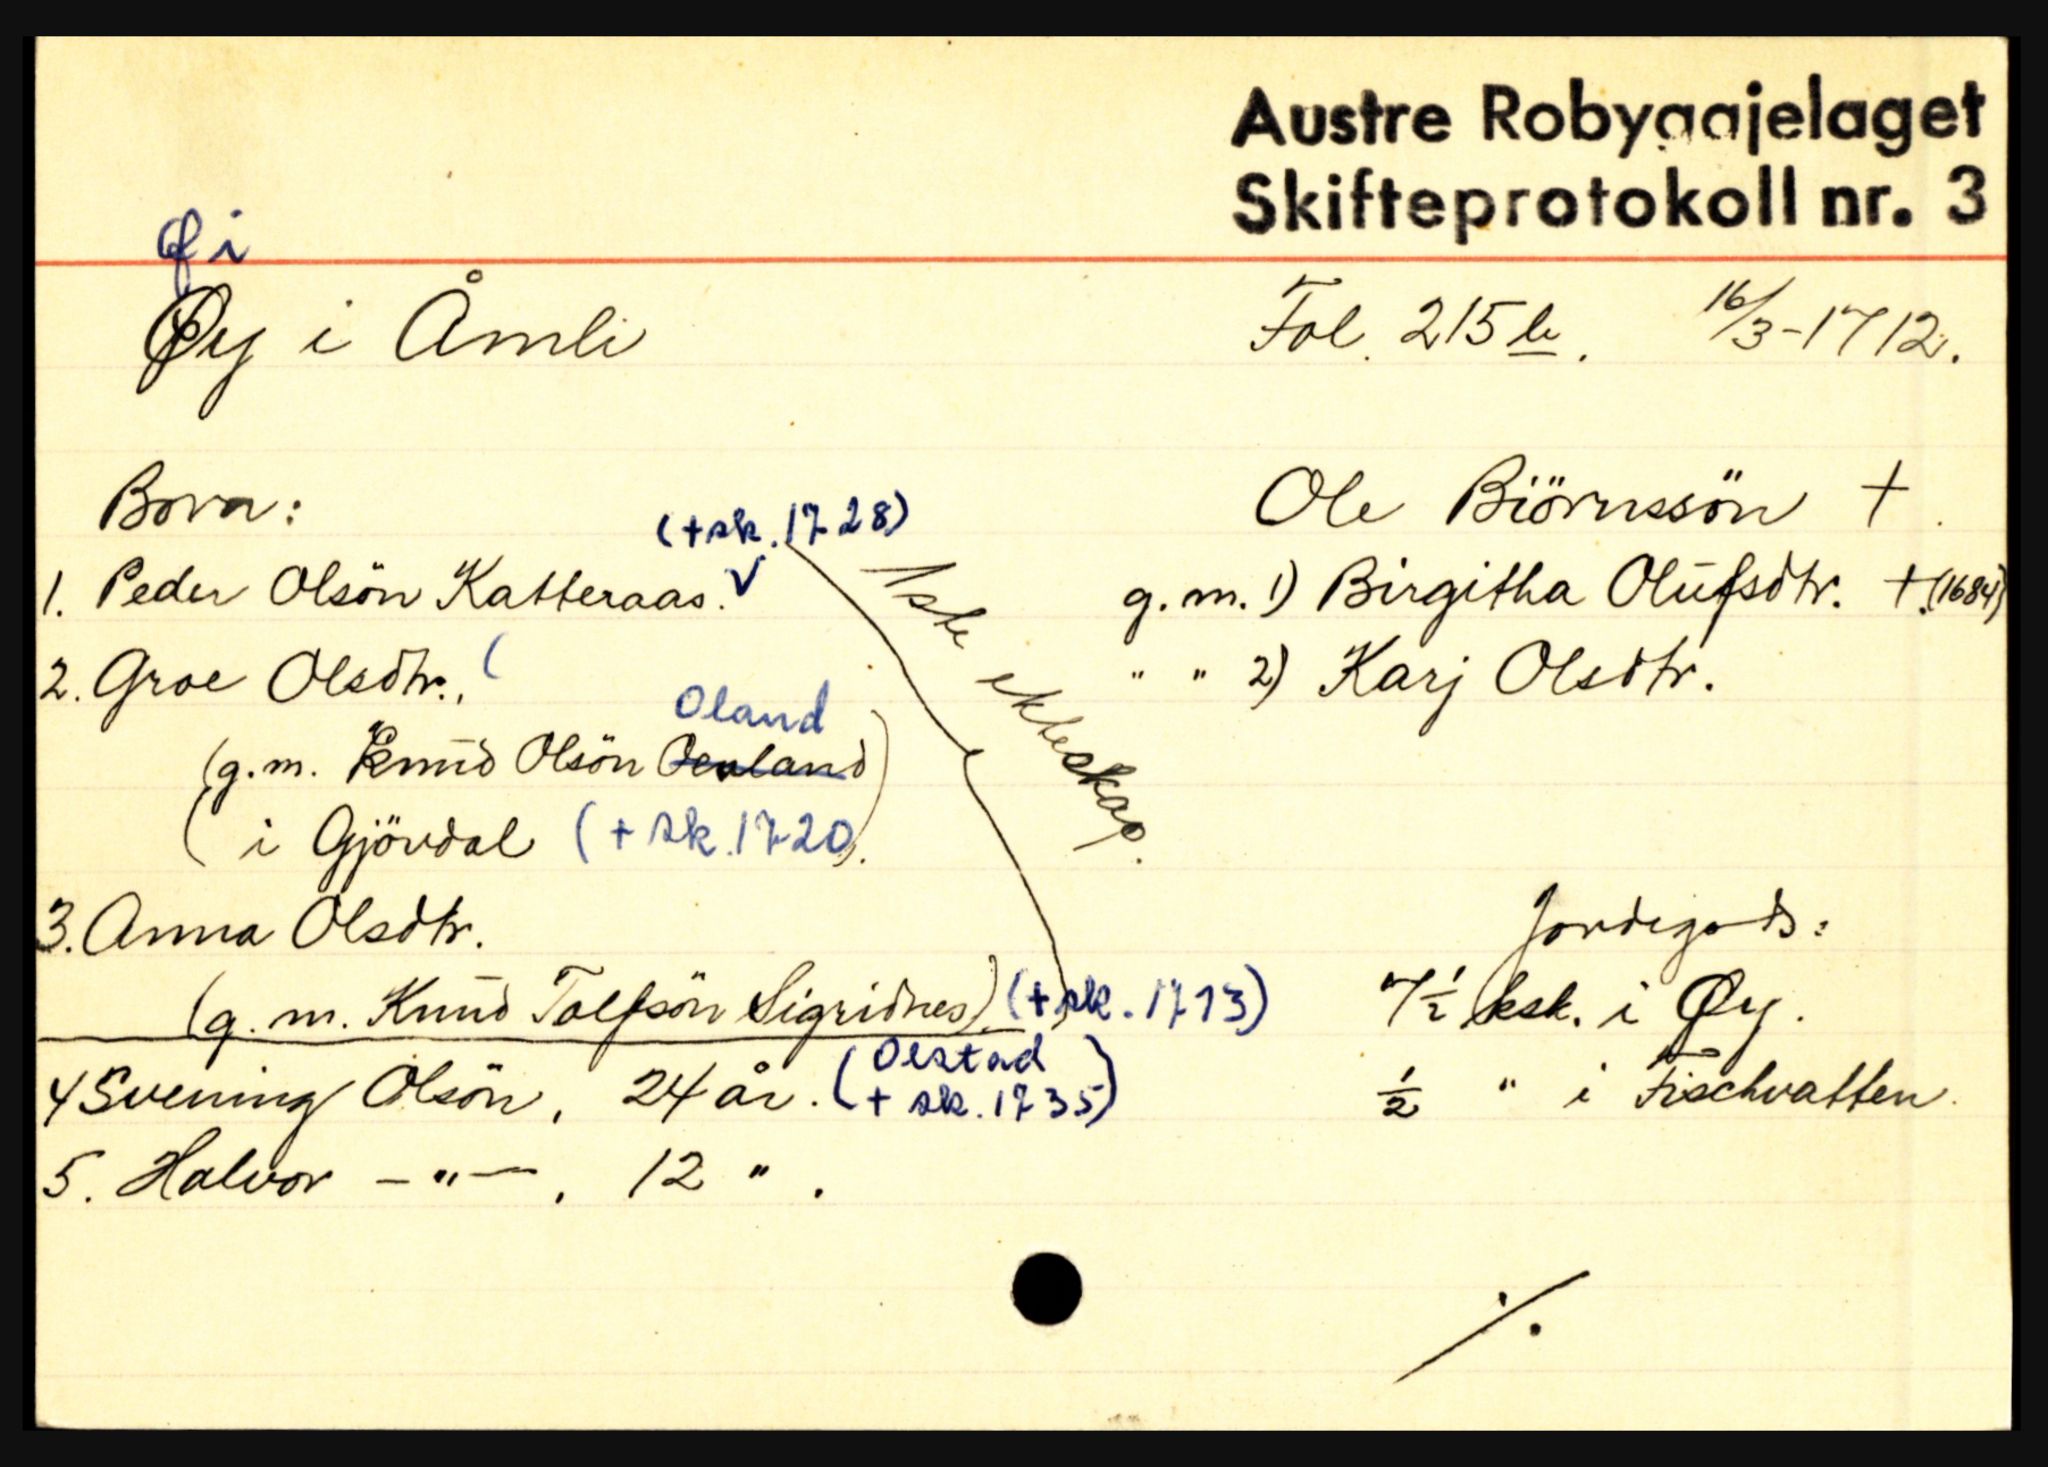 Austre Robyggjelaget
Skifteprotokoll nr. 3
Øi
Øy i Åmli
Fol. 215 b. 16/3-1712.
Born:
Ole Biörnssön +.
(+ sk. 1728)
1. Peder Olsön Katteraas. √
g.m. 1) Birgitha Olufsdtr. +. (1684)
1ste ekteskap.
2. Groe Olsdtr., (
" " 2) Karj Olsdtr.
Oland
(g.m. Knud Olsön Oeuland)
( i Gjövdal (+ sk. 1720).
3. Anna Olsdtr.
Jordegods:
(g.m. Knud Tolfsön Sigridnes) (+ sk. 1713)
7 1/2 ksk. i Øy.
4 Svening Olsön, 24 år. (Olstad
+ sk. 1735)
1/2 " i Fischvatten.
5. Halvor -"-, 12 ".
./.